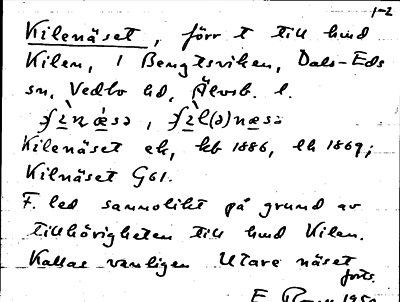 1-2
Kilenäset, förr t till hmd
Kilen, i Bengtsviken, Dals-Eds
sn, Vedbo hd, Älvsb. l.
Kilenäset ek, kb 1886, lh 1869;
Kilnäset G61.
F. led sannolikt på grund av
tillhörigheten till hmd Kilen.
Kallas vanligen Utare näset
forts.